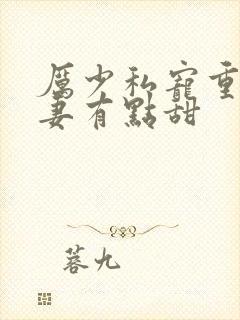 厲少私寵重
妻有點甜
蒼九